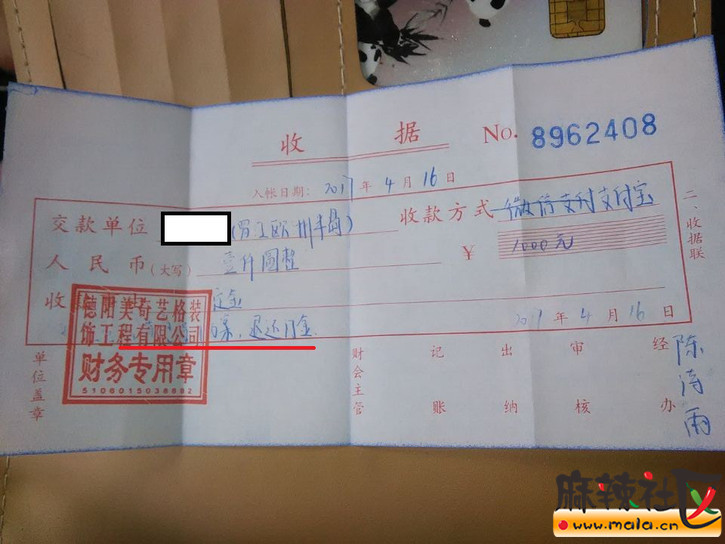 收 据 No. 8962408
入帐日期：2017 年 4 月 16 日
交款单位 收款方式 微信支付支付宝
人民币(大写) 壹仟圆整 ￥ 1000元
收 定金
退还 金
2017 年 4 月 16 日
德阳美奇艺格装
饰工程有限公司
财务专用章
5106015038682
单位盖章
财会主管 记账 出纳 审核 经办 陈
二、收据联
麻辣社区
www.mala.cn